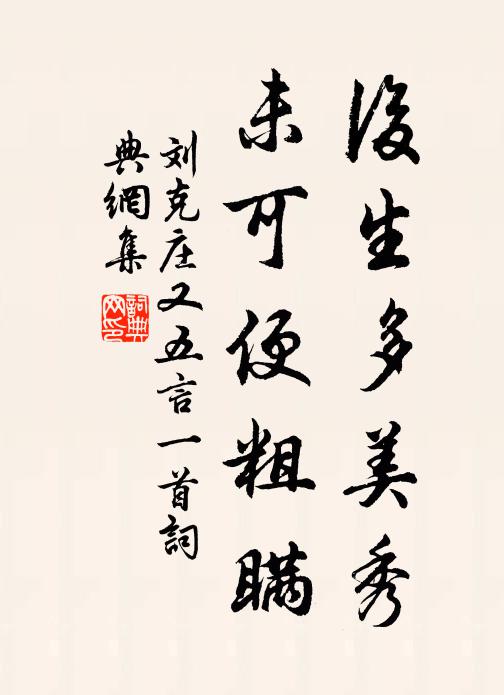 後生多美秀
未可便粗瞞
刘克庄又五言一首詞
典網集
詞典
网印